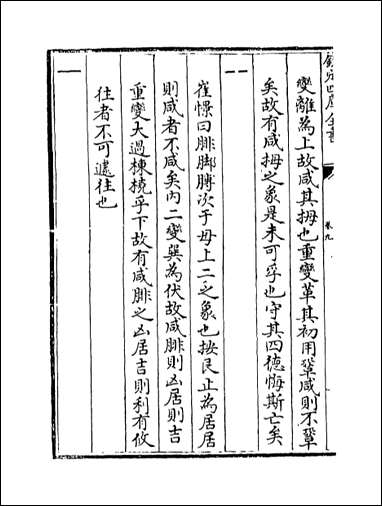 欽定四庫全書
卷九
變離為上故咸其拇也重變革其初用鞏咸則不鞏
矣故有咸拇之象是未可孚也守其四德悔斯亡矣
崔憬曰腓脚膊次于母上二之象也按艮止為居居
則咸者不咸矣內二變巽為伏故咸腓則凶居則吉
重變大過棟橈乎下故有咸腓之凶居吉則利有攸
往者不可遽往也